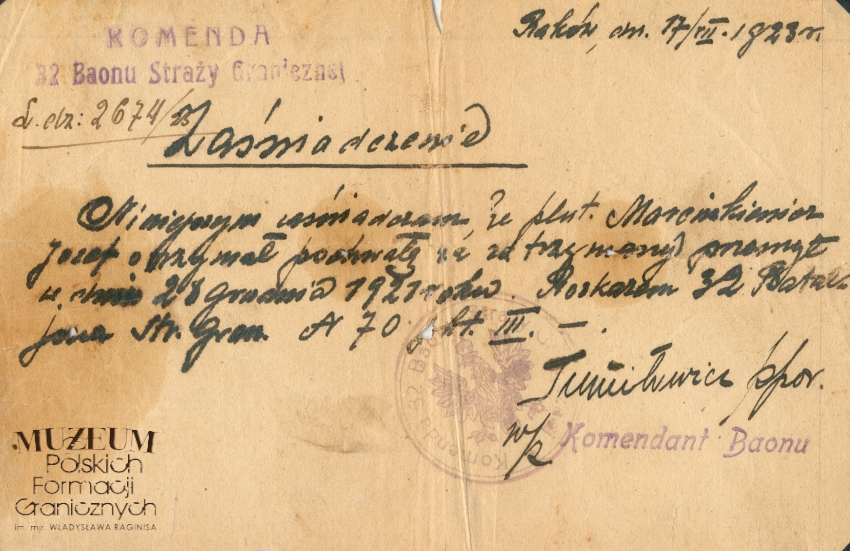 KOMENDA
32 Baonu Straży Granicznej
L. dz: 2674/23
Raków, dn. 17/VII. 1923 r.
Zaświadczenie
Niniejszym zaświadczam, że plut. Marcinkiewicz
Józef otrzymał pochwałę za zatrzymany przemyt
w dniu 28 grudnia 1921 roku. Rozkazem 32 Batal-
jonu Str. Gran. N 70 pkt. III. —.
ppor.
w/z Komendant Baonu
Komenda 32 Baonu
MUZEUM
Polskich
Formacji
Granicznych
im. mjr. WŁADYSŁAWA RAGINISA